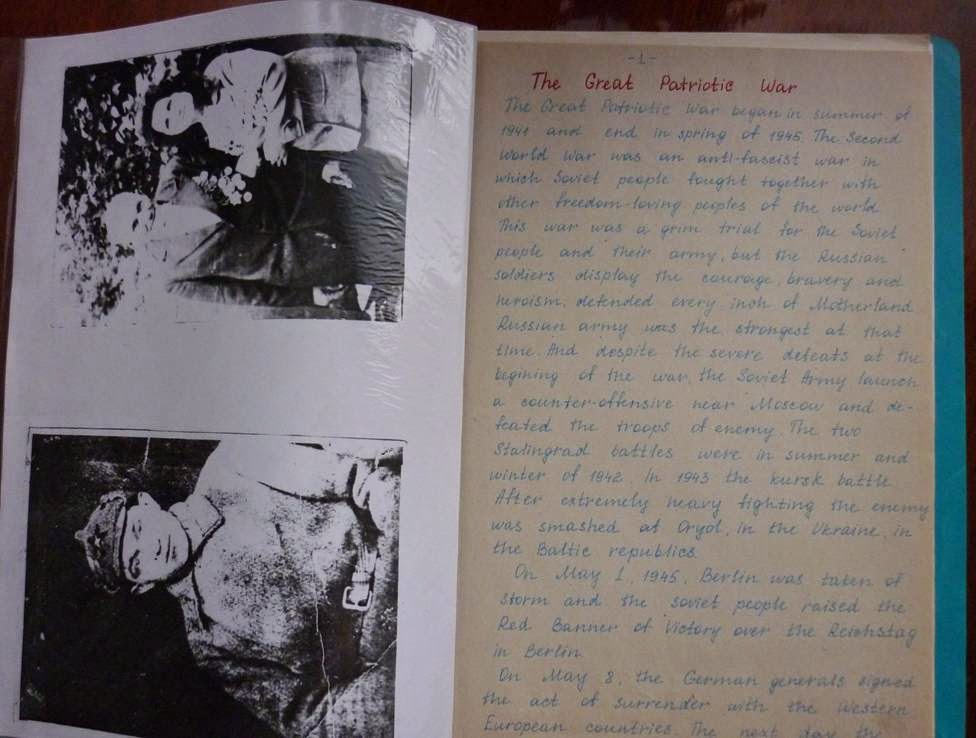 -1-
The Great Patriotic War
The Great Patriotic War began in summer of
1941 and end in spring of 1945. The Second
World War was an anti-fascist war in
which Soviet people fought together with
other freedom-loving peoples of the world.
This war was a grim trial for the Soviet
people and their army, but the Russian
soldiers display the courage, bravery and
heroism, defended every inch of Motherland.
Russian army was the strongest at that
time. And despite the severe defeats at the
begining of the war, the Soviet Army launch
a counter-offensive near Moscow and de-
feated the troops of enemy. The two
Stalingrad battles were in summer and
winter of 1942. In 1943 the kursk battle.
After extremely heavy fighting the enemy
was smashed at Oryol, in the Ukraine, in
the Baltic republics.
On May 1, 1945, Berlin was taken of
storm and the soviet people raised the
Red Banner of Victory over the Reichstag
in Berlin.
On May 8, the German generals signed
the act of surrender with the Western
European countries. The next day the